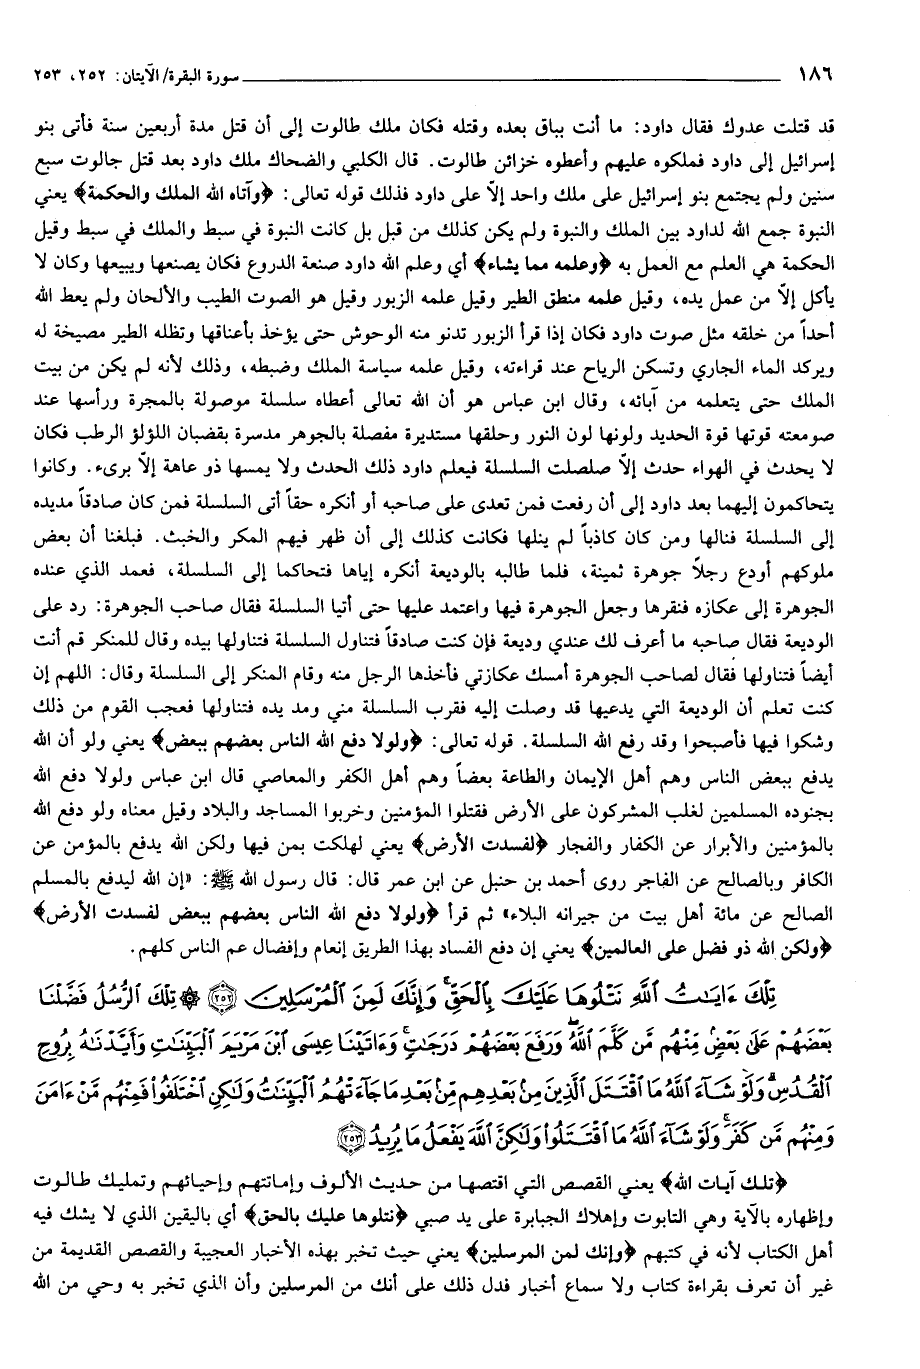 ١٨٦ سورة البقرة/ الآيتان: ٢٥٢، ٢٥٣
قد قتلت عدوك فقال داود: ما أنت بباق بعده وقتله فكان ملك طالوت إلى أن قتل مدة أربعين سنة فأتى بنو
إسرائيل إلى داود فملكوه عليهم وأعطوه خزائن طالوت. قال الكلبي والضحاك ملك داود بعد قتل جالوت سبع
سنين ولم يجتمع بنو إسرائيل على ملك واحد إلاّ على داود فذلك قوله تعالى: ﴿وآتاه الله الملك والحكمة﴾ يعني
النبوة جمع الله لداود بين الملك والنبوة ولم يكن كذلك من قبل بل كانت النبوة في سبط والملك في سبط وقيل
الحكمة هي العلم مع العمل به ﴿وعلمه مما يشاء﴾ أي وعلم الله داود صنعة الدروع فكان يصنعها ويبيعها وكان لا
يأكل إلاّ من عمل يده، وقيل علمه منطق الطير وقيل علمه الزبور وقيل هو الصوت الطيب والألحان ولم يعط الله
أحداً من خلقه مثل صوت داود فكان إذا قرأ الزبور تدنو منه الوحوش حتى يؤخذ بأعناقها وتظله الطير مصيخة له
ويركد الماء الجاري وتسكن الرياح عند قراءته، وقيل علمه سياسة الملك وضبطه، وذلك لأنه لم يكن من بيت
الملك حتى يتعلمه من آبائه، وقال ابن عباس هو أن الله تعالى أعطاه سلسلة موصولة بالمجرة ورأسها عند
صومعته قوتها قوة الحديد ولونها لون النور وحلقها مستديرة مفصلة بالجوهر مدسرة بقضبان اللؤلؤ الرطب فكان
لا يحدث في الهواء حدث إلاّ صلصلت السلسلة فيعلم داود ذلك الحدث ولا يمسها ذو عاهة إلاّ برىء. وكانوا
يتحاكمون إليهما بعد داود إلى أن رفعت فمن تعدى على صاحبه أو أنكره حقاً أتى السلسلة فمن كان صادقاً مديده
إلى السلسلة فنالها ومن كان كاذباً لم ينلها فكانت كذلك إلى أن ظهر فيهم المكر والخبث. فبلغنا أن بعض
ملوكهم أودع رجلاً جوهرة ثمينة، فلما طالبه بالوديعة أنكره إياها فتحاكما إلى السلسلة، فعمد الذي عنده
الجوهرة إلى عكازه فنقرها وجعل الجوهرة فيها واعتمد عليها حتى أتيا السلسلة فقال صاحب الجوهرة: رد على
الوديعة فقال صاحبه ما أعرف لك عندي وديعة فإن كنت صادقاً فتناول السلسلة فتناولها بيده وقال للمنكر قم أنت
أيضاً فتناولها فقال لصاحب الجوهرة أمسك عكازتي فأخذها الرجل منه وقام المنكر إلى السلسلة وقال: اللهم إن
كنت تعلم أن الوديعة التي يدعيها قد وصلت إليه فقرب السلسلة مني ومد يده فتناولها فعجب القوم من ذلك
وشكوا فيها فأصبحوا وقد رفع الله السلسلة. قوله تعالى: ﴿ولولا دفع الله الناس بعضهم ببعض﴾ يعني ولو أن الله
يدفع ببعض الناس وهم أهل الإيمان والطاعة بعضاً وهم أهل الكفر والمعاصي قال ابن عباس ولولا دفع الله
بجنوده المسلمين لغلب المشركون على الأرض فقتلوا المؤمنين وخربوا المساجد والبلاد وقيل معناه ولو دفع الله
بالمؤمنين والأبرار عن الكفار والفجار ﴿لفسدت الأرض﴾ يعني لهلكت بمن فيها ولكن الله يدفع بالمؤمن عن
الكافر وبالصالح عن الفاجر روى أحمد بن حنبل عن ابن عمر قال: قال رسول الله ﷺ: «إن الله ليدفع بالمسلم
الصالح عن مائة أهل بيت من جيرانه البلاء» ثم قرأ ﴿ولولا دفع الله الناس بعضهم ببعض لفسدت الأرض﴾
﴿ولكن الله ذو فضل على العالمين﴾ يعني إن دفع الفساد بهذا الطريق إنعام وإفضال عم الناس كلهم.
تِلْكَ ءَايَـٰتُ ٱللَّهِ نَتْلُوهَا عَلَيْكَ بِٱلْحَقِّ ۚ وَإِنَّكَ لَمِنَ ٱلْمُرْسَلِينَ ﴿٢٥٢﴾ ۞ تِلْكَ ٱلرُّسُلُ فَضَّلْنَا
بَعْضَهُمْ عَلَىٰ بَعْضٍ ۘ مِّنْهُم مَّن كَلَّمَ ٱللَّهُ ۖ وَرَفَعَ بَعْضَهُمْ دَرَجَـٰتٍ ۚ وَءَاتَيْنَا عِيسَى ٱبْنَ مَرْيَمَ ٱلْبَيِّنَـٰتِ وَأَيَّدْنَـٰهُ بِرُوحِ
ٱلْقُدُسِ ۗ وَلَوْ شَآءَ ٱللَّهُ مَا ٱقْتَتَلَ ٱلَّذِينَ مِنۢ بَعْدِهِم مِّنۢ بَعْدِ مَا جَآءَتْهُمُ ٱلْبَيِّنَـٰتُ وَلَـٰكِنِ ٱخْتَلَفُوا۟ فَمِنْهُم مَّنْ ءَامَنَ
وَمِنْهُم مَّن كَفَرَ ۚ وَلَوْ شَآءَ ٱللَّهُ مَا ٱقْتَتَلُوا۟ وَلَـٰكِنَّ ٱللَّهَ يَفْعَلُ مَا يُرِيدُ ﴿٢٥٣﴾
﴿تلك آيات الله﴾ يعني القصص التي اقتصها من حديث الألوف وإماتتهم وإحيائهم وتمليك طالوت
وإظهاره بالآية وهي التابوت وإهلاك الجبابرة على يد صبي ﴿نتلوها عليك بالحق﴾ أي باليقين الذي لا يشك فيه
أهل الكتاب لأنه في كتبهم ﴿وإنك لمن المرسلين﴾ يعني حيث تخبر بهذه الأخبار العجيبة والقصص القديمة من
غير أن تعرف بقراءة كتاب ولا سماع أخبار فدل ذلك على أنك من المرسلين وأن الذي تخبر به وحي من الله